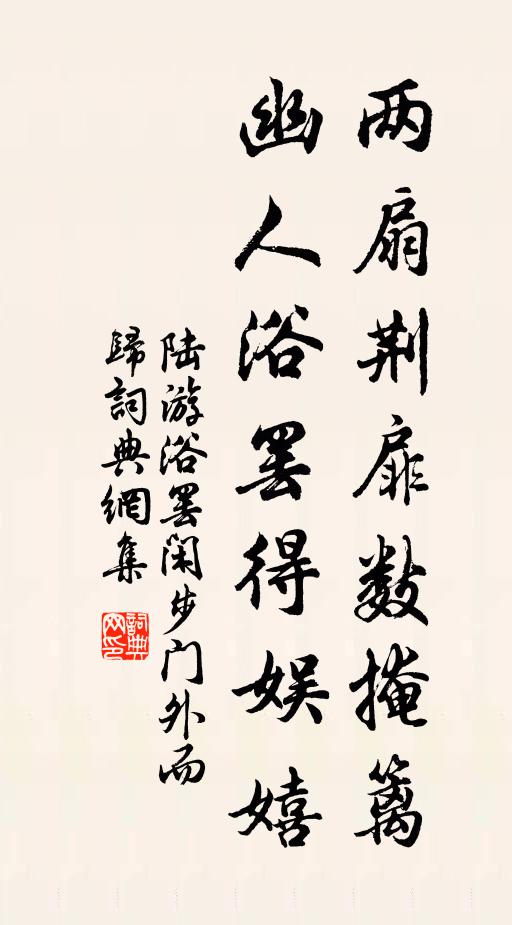 两扇荆扉数掩篱
幽人浴罢得娱嬉
陆游浴罢闲步门外而
归词典網集
詞典网印